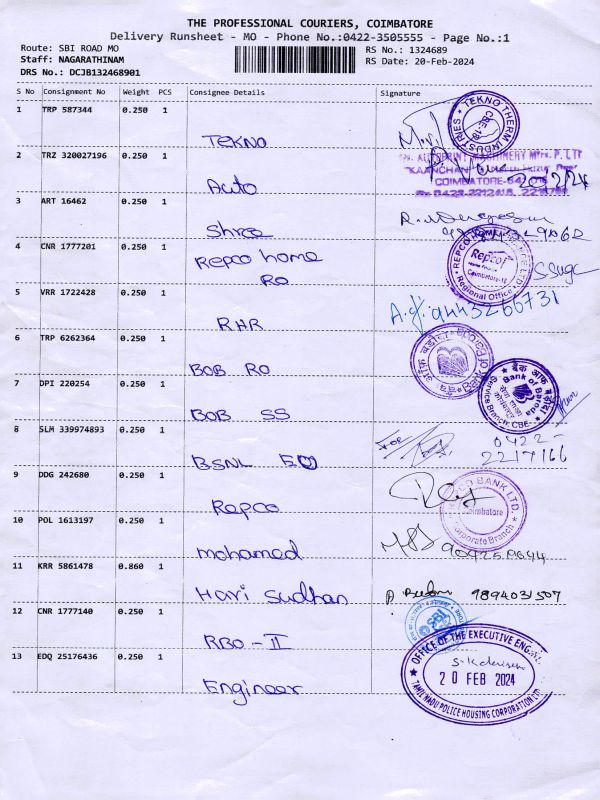 THE PROFESSIONAL COURIERS, COIMBATORE
Delivery Runsheet - MO - Phone No.:0422-3505555 - Page No.:1
Route: SBI ROAD MO
RS No.: 1324689
Staff: NAGARATHINAM
RS Date: 20-Feb-2024
DRS No.: DCJB132468901
S No Consignment No Weight PCS Consignee Details Signature
1 TRP 587344 0.250 1
TEKNO
TEKNO THERM INDUSTRIES
2 TRZ 320027196 0.250 1
Auto
COIMBATORE-641
20/2/24
3 ART 16462 0.250 1
Shree
4 CNR 1777201 0.250 1
Repco home
RO
Repco
Regional Office
5 VRR 1722428 0.250 1
RHR
6 TRP 6262364 0.250 1
BOB RO
7 DPI 220254 0.250 1
BOB SS
बैंक ऑफ
Bank of Baroda
Service Branch, CBE
8 SLM 339974893 0.250 1
BSNL EO
For
0422-
2217166
9 DDG 242680 0.250 1
Repco
BANK LTD.
Coimbatore
Corporate Branch
10 POL 1613197 0.250 1
mohamed
11 KRR 5861478 0.860 1
Hari Sudhan
9894031507
12 CNR 1777140 0.250 1
RBO - II
SBI
13 EDQ 25176436 0.250 1
Engineer
OFFICE OF THE EXECUTIVE ENGINEER
20 FEB 2024
TAMIL NADU POLICE HOUSING CORPORATION LTD